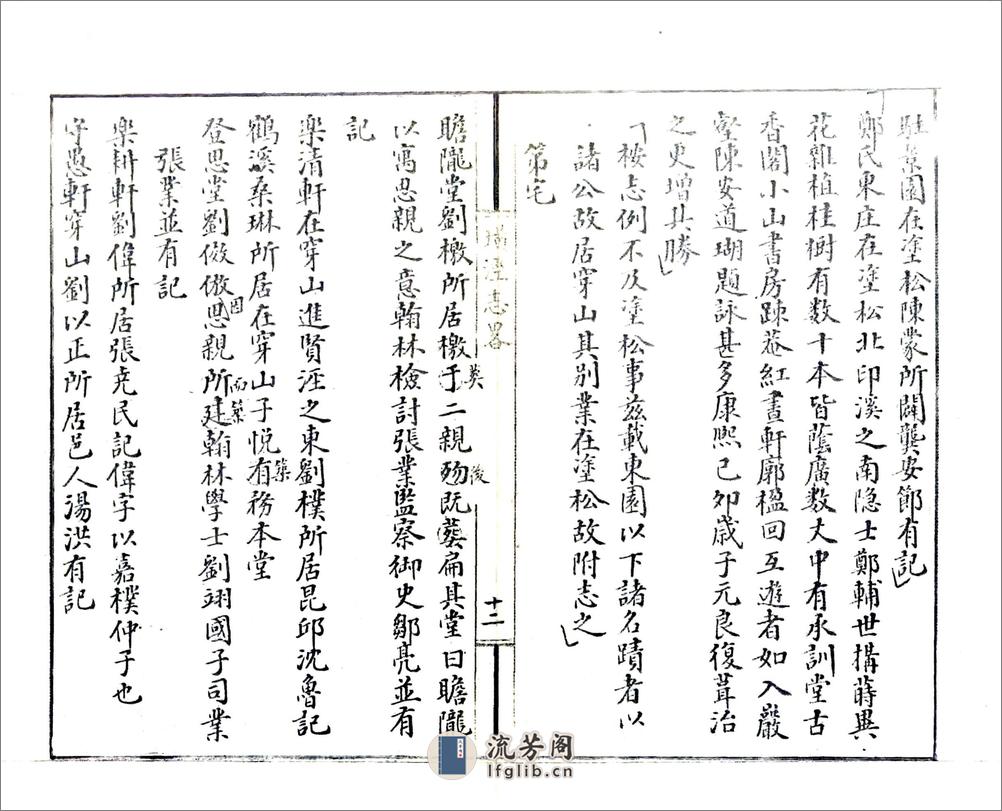 駐景園在塗松陳蒙所闢龔安節有記
鄭氏東庄在塗松北印溪之南隐士鄭輔世搆蒔異
花雜植桂樹有数十本皆蔭廣数丈中有承訓堂古
香閣小山書房踈菴紅晝軒廓楹回互遊者如入嚴
壑陳安道瑚題詠甚多康熙己夘歳子元良復葺治
之更增其勝
按志例不及塗松事兹載東園以下諸名蹟者以
諸公故居穿山其别業在塗松故附志之
第宅
璜涇志畧
十二
瞻隴堂劉檄所居檄于二親殁既葬扁其堂曰瞻隴
葬
後
以寓思親之意翰林檢討張業監察御史鄒亮並有
記
樂清軒在穿山進賢涇之東劉樸所居昆邱沈魯記
鶴溪桑琳所居在穿山子悦有務本堂
築
登思堂劉儆儆思親所建翰林學士劉翊國子司業
因
而築
張業並有記
樂耕軒劉偉所居張尭民記偉字以嘉樸仲子也
守愚軒穿山劉以正所居邑人湯洪有記
流芳阁
lfglib.cn